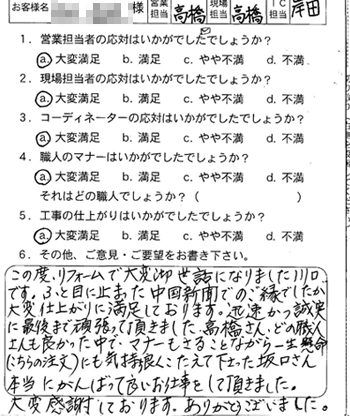 お客様名 様 営業担当 高橋 現場担当 高橋 IC担当 岸田
1．営業担当者の応対はいかがでしたでしょうか？
a. 大変満足 b. 満足 c. やや不満 d. 不満
2．現場担当者の応対はいかがでしたでしょうか？
a. 大変満足 b. 満足 c. やや不満 d. 不満
3．コーディネーターの応対はいかがでしたでしょうか？
a. 大変満足 b. 満足 c. やや不満 d. 不満
4．職人のマナーはいかがでしたでしょうか？
a. 大変満足 b. 満足 c. やや不満 d. 不満
それはどの職人でしょうか？（ ）
5．工事の仕上がりはいかがでしたでしょうか？
a. 大変満足 b. 満足 c. やや不満 d. 不満
6．その他、ご意見・ご要望をお書き下さい。
この度、リフォームで大変御世話になりました川口
です。ふと目に止まった中国新聞でのご縁でしたが
大変仕上がりに満足しております。迅速かつ誠実
に最後まで頑張って頂きました。高橋さん、どの職人
さんも良かった中で、マナーもさることながら一生懸命
(こちらの注文)にも気持良くこたえて下さった坂口さん
本当にがんばって良いお仕事をして頂きました。
大変感謝しております。ありがとうございました。